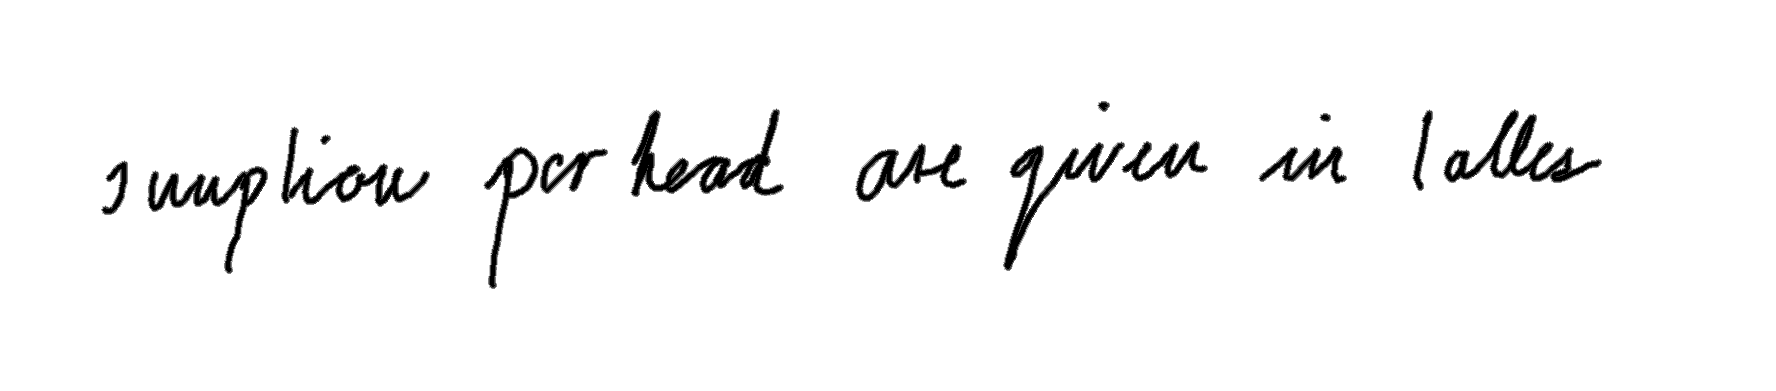 sumption per head are given in tables